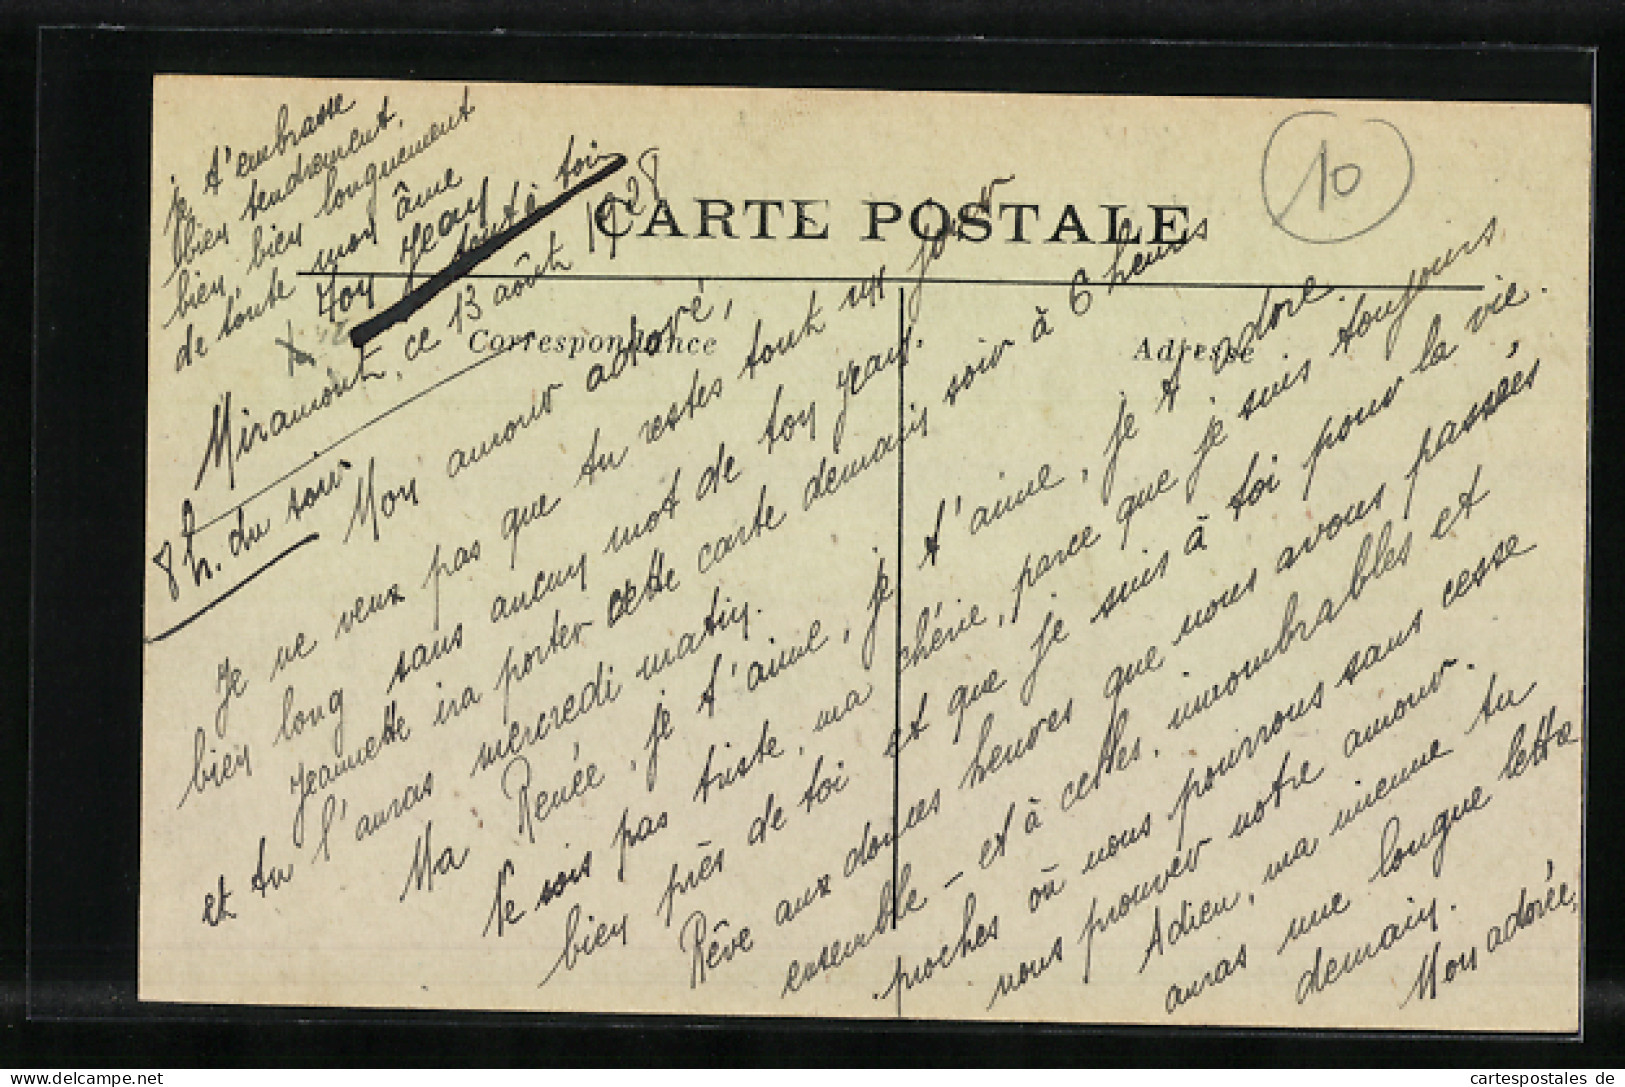 CARTE POSTALE
10
Correspondance
Adresse
Miramont, ce 13 août 1928
8 h. du soir
Mon amour adoré,
Je ne veux pas que tu restes tout un jour
bien long sans aucun mot de ton Jean.
Jeannette ira porter cette carte demain soir à 6 heures
et tu l'auras mercredi matin.
Ma Renée, je t'aime, je t'aime, je t'adore
Ne sois pas triste, ma chérie, parce que je suis toujours
bien près de toi et que je suis à toi pour la vie.
Rêve aux douces heures que nous avons passées
ensemble – et à celles, innombrables et
proches où nous pourrons sans cesse
nous prouver notre amour.
Adieu, ma mienne tu
auras une longue lettre
demain.
Mon adorée,
je t'embrasse
bien tendrement,
bien, bien longuement
de toute mon âme
Ton Jean
tout à toi
cartespostales de
delcampe.net